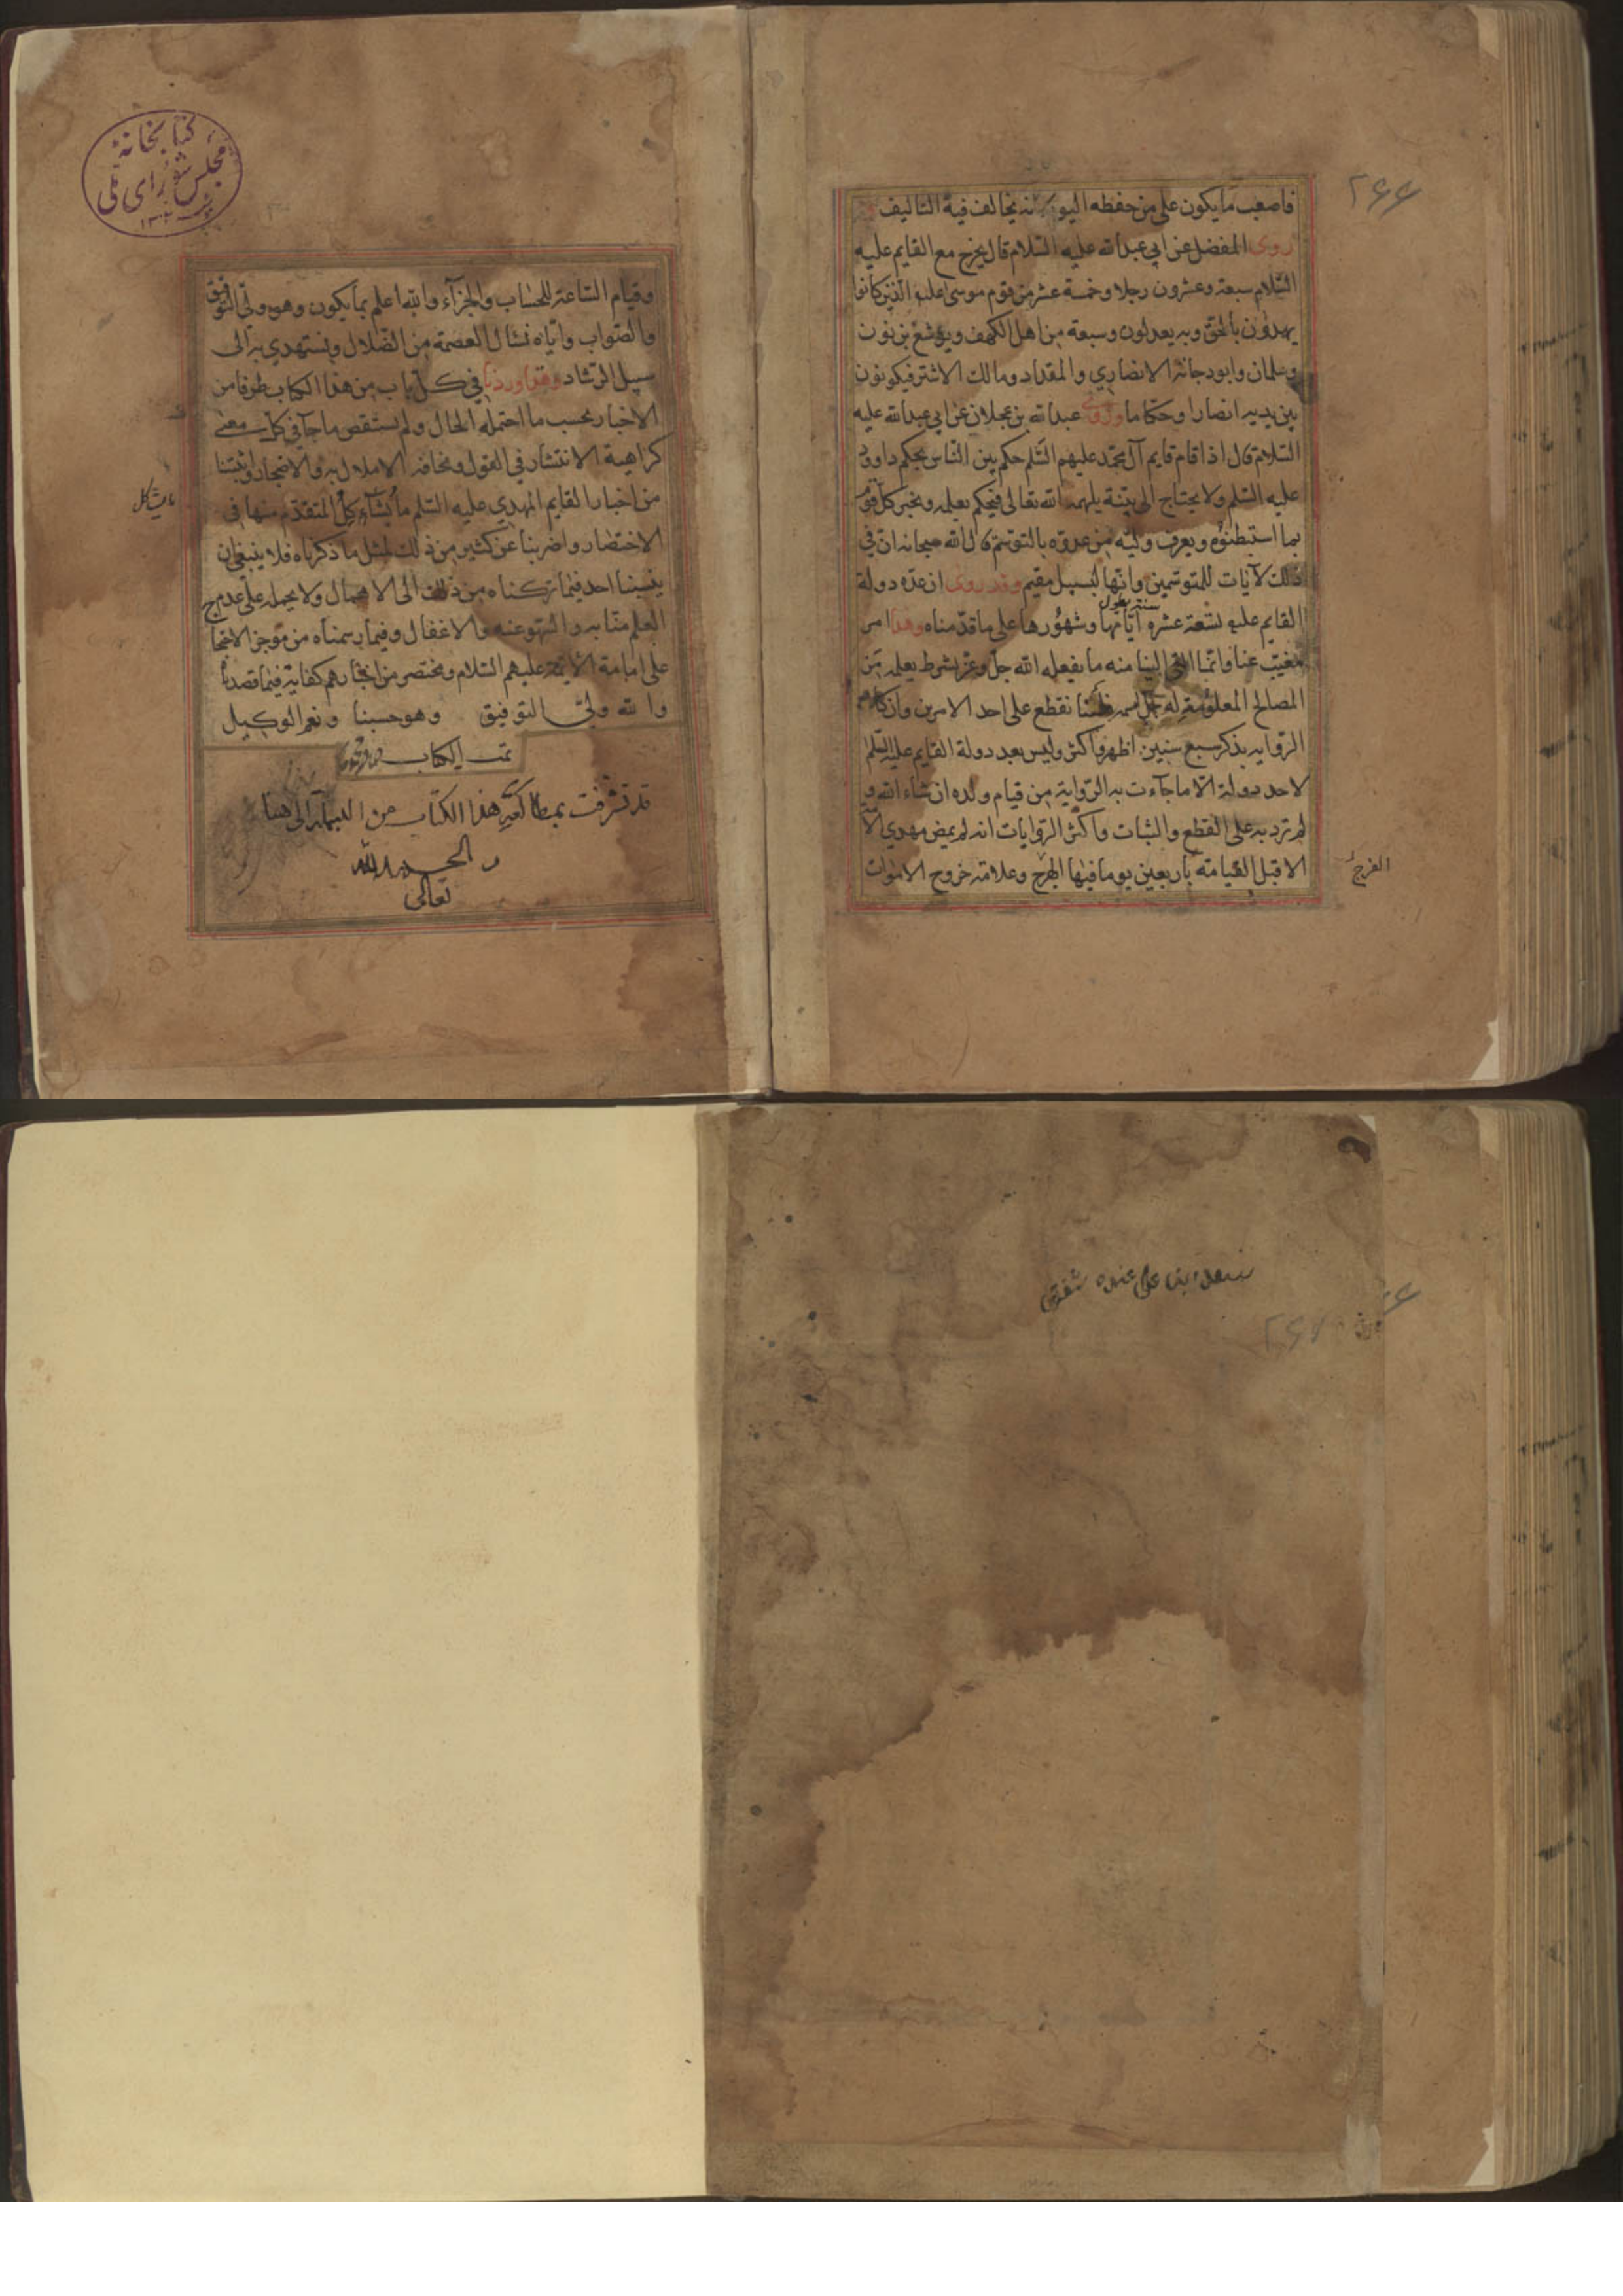 فاصعب ما يكون على من حفظه اليوم لانه يخالف فيه التاليف
روى المفضل عن ابي عبدالله عليه السلام قال يخرج مع القايم عليه
السلام سبعة وعشرون رجلا وخمسة عشر من قوم موسى عليه الذين كانوا
يهدون بالحق وبه يعدلون وسبعة من اهل الكهف ويوشع بن نون
وسلمان وابودجانة الانصاري والمقداد ومالك الاشتر فيكونون
بين يديه انصارا وحكاما وروى عبدالله بن عجلان عن ابي عبدالله عليه
السلام قال اذا قام قايم آل محمد عليهم السلم حكم بين الناس بحكم داوود
عليه السلم ولا يحتاج الى بينة يلهمه الله تعالى فيحكم بعلمه ويخبر كل قوم
بما استبطنوه ويعرف وليه من عدوه بالتوسم قال الله سبحانه ان في
ذلك لآيات للمتوسمين وانها لبسبيل مقيم وقد روى ان عدة دولة
القايم عليه تسعة عشره سنة يطول ايامها وشهورها على ما قدمناه وهذا امر
مغيب عنا وانما القي الينا منه ما يفعله الله جل وعز بشرط يعلمه من
المصالح المعلومة له جل اسمه فلسنا نقطع على احد الامرين وان كانت
الرواية بذكر سبع سنين اظهر واكثر وليس بعد دولة القايم عليه السلم
لاحد دولة الا ما جآءت به الرواية من قيام ولده ان شاء الله و
لم ترد به على القطع والثبات واكثر الروايات انه لم يمض مهدي الامة
الا قبل القيامة باربعين يوما فيها الهرج وعلامة خروج الاموات
الفرج
٢٦٦
كتابخانهٔ
مجلس شورای ملی
١٣٠٢
وقيام الساعة للحساب والجزآء والله اعلم بما يكون وهو ولي التوفيق
والصواب واياه نسأل العصمة من الضلال ونستهدي به الى
سبيل الرشاد وقد اوردنا في كل باب من هذا الكتاب طرفا من
الاخبار بحسب ما احتمله الحال ولم نستقص ما جآء في كل معنى
كراهية الانتشار في القول ومخافة الاملال به والاضجار واثبتنا
من اخبار القايم المهدي عليه السلم ما يشآكل المتقدم منها في
الاختصار واضربنا عن كثير من ذلك لمثل ما ذكرناه فلا ينبغي ان
ينسبنا احد فيما تركناه من ذلك الى الاهمال ولا يحمله على عدم
العلم منا به والسهو عنه والاغفال وفيما رسمناه من موجز الاحتجاج
على امامة الائمة عليهم السلام ومختصر من اخبارهم كفاية فيما قصدناه
والله ولي التوفيق وهو حسبنا ونعم الوكيل
تمت الكتاب
قد تشرفت بمطالعة هذا الكتاب من البسملة الى هنا
والحمد لله
تعالى
ما يشاكل
٢٦٧